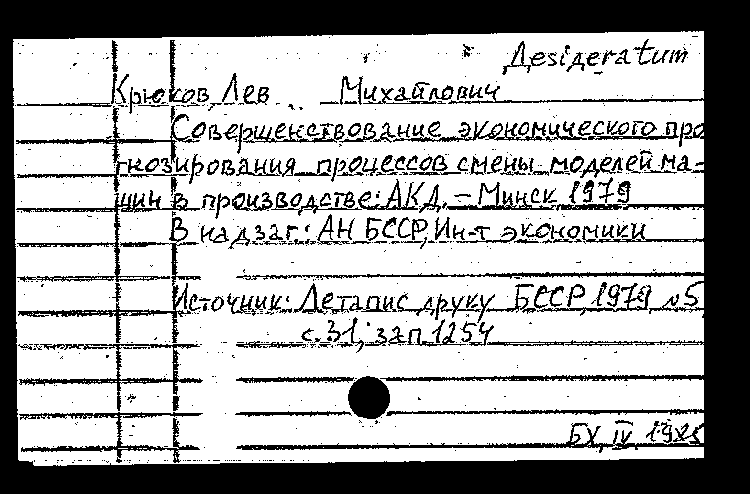 Desideratum
Крюков Лев Михайлович
Совершенствование экономического про
гнозирования процессов смены моделей ма-
шин в производстве: АКД. – Минск 1979
В надзаг.: АН БССР, Ин-т экономики
Источник: Летапис друку БССР, 1979, №5,
с.31, зап.1254
БХ, IV, 1985